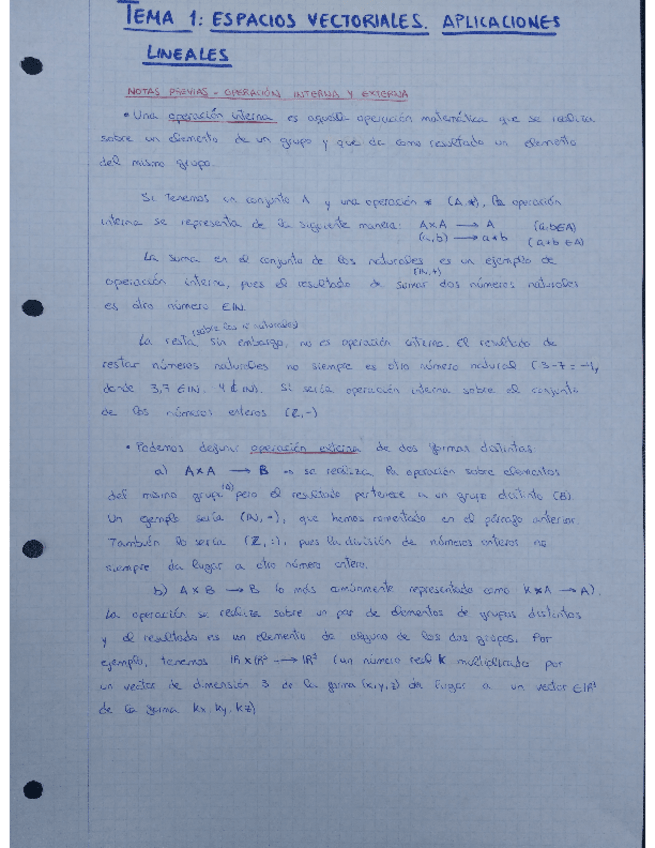 TEMA 1: ESPACIOS VECTORIALES. APLICACIONES
LINEALES
NOTAS PREVIAS - OPERACIÓN INTERNA Y EXTERNA
• Una operación interna es aquella operación matemática que se realiza
sobre un elemento de un grupo y que da como resultado un elemento
del mismo grupo.
Si tenemos un conjunto A y una operación * (A,*), la operación
interna se representa de la siguiente manera: A×A → A (a,b∈A)
(a,b) → a*b (a*b ∈A)
La suma en el conjunto de los naturales es un ejemplo de
(IN,+)
operación interna, pues el resultado de sumar dos números naturales
es otro número ∈IN.
(sobre los nº naturales)
La resta, sin embargo, no es operación interna. El resultado de
restar números naturales no siempre es otro número natural (3-7=-4,
donde 3,7 ∈IN, 4 ∉ IN). Sí sería operación interna sobre el conjunto
de los números enteros (Z,-)
• Podemos definir operación externa de dos formas distintas:
a) A×A → B → se realiza la operación sobre elementos
del mismo grupo (A) pero el resultado pertenece a un grupo distinto (B).
Un ejemplo sería (IN,-), que hemos comentado en el párrafo anterior.
También lo sería (Z,:), pues la división de números enteros no
siempre da lugar a otro número entero.
b) A × B → B (o más comúnmente representado como K×A → A).
La operación se realiza sobre un par de elementos de grupos distintos
y el resultado es un elemento de alguno de los dos grupos. Por
ejemplo, tenemos IR×IR³ → IR³ (un número real K multiplicado por
un vector de dimensión 3 de la forma (x,y,z) da lugar a un vector ∈IR³
de la forma kx, ky, kz)